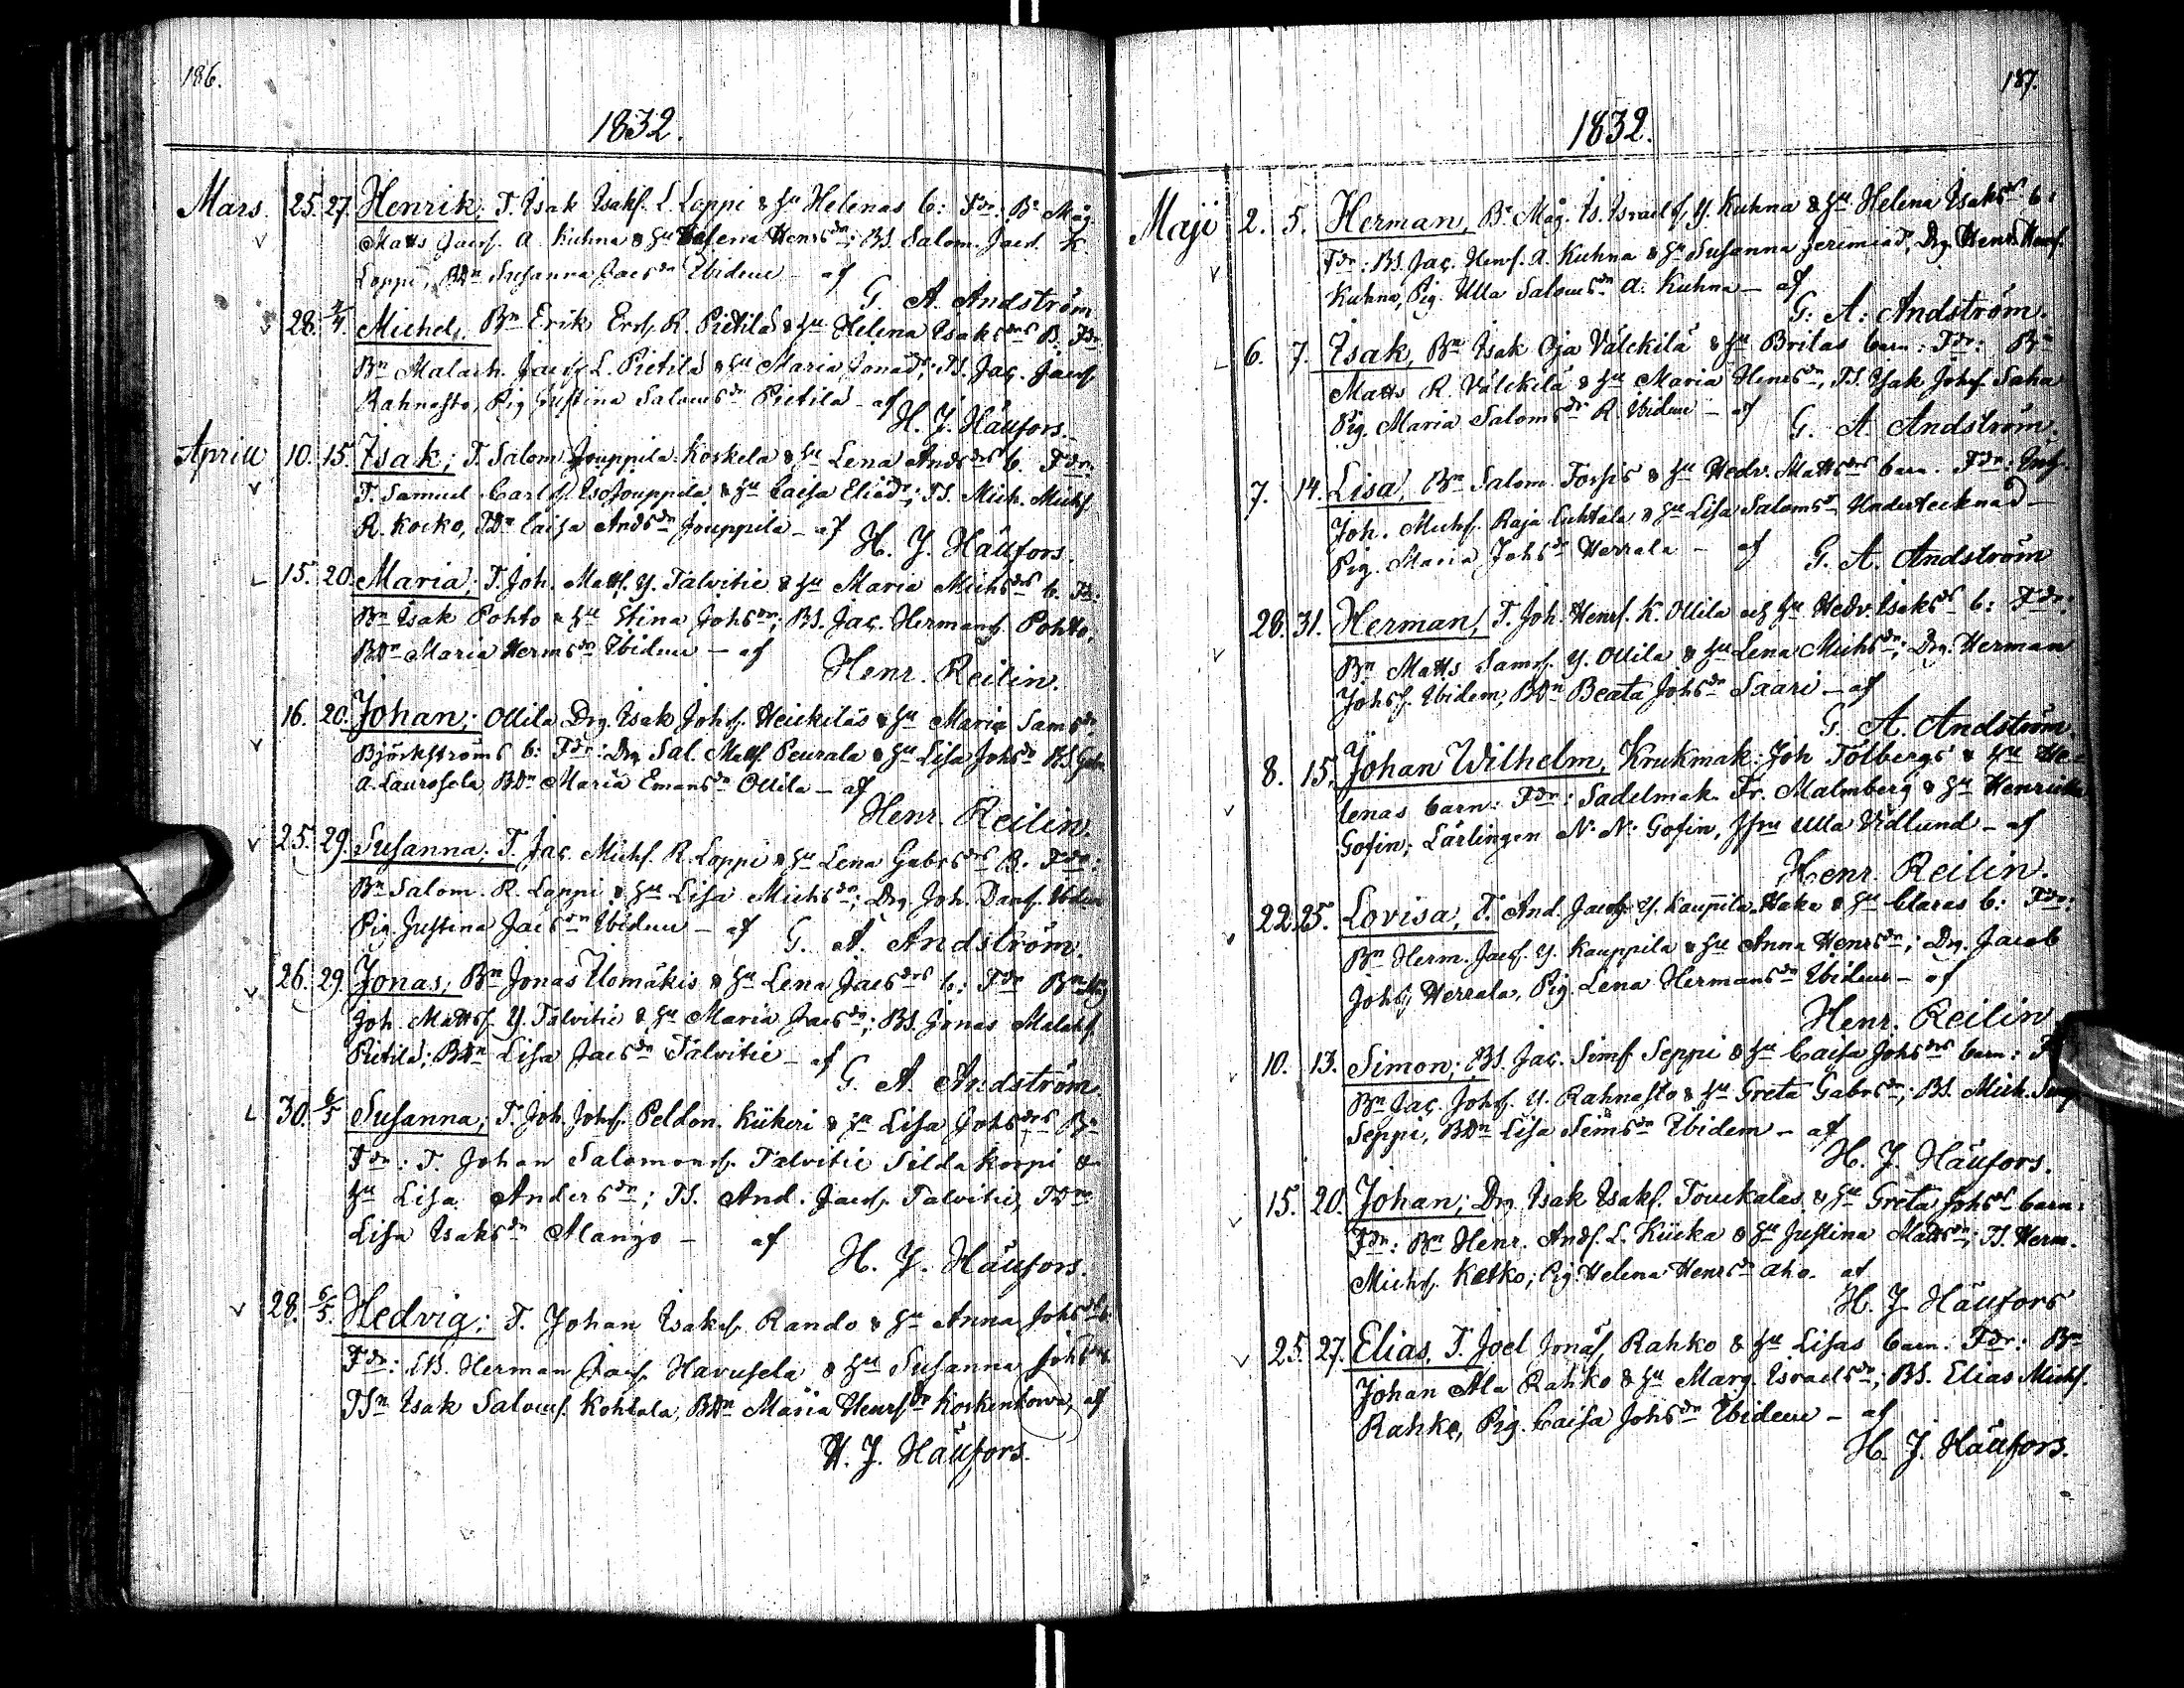 186.
1832.
Mars. 25. 27. Henrik, T. Isak Isaks. L. Loppi & Hu Helenas b: Fdr: Bn Måg.
Matts Jacs. A. Kuhna & Hu Henrsdr; BS. Salom. Jacs. K.
Loppi, BDn Susanna Jacsdn Ibidem - af
G. A. Andström
28. 1/4 Michel, Bn Erik Ers. R. Pietilä & Hu Helena Isaksdrs B. Fdr
Bn Malach. Jacs. L. Pietilä & Hu Maria Jonæd; TS. Jac. Jacs.
Rahnasto, Pig Justina Salomsdn Pietilä - af
H. J. Häufors.
Aprill 10. 15. Isak; T. Salom. Jouppila Koskela & Hu Lena Andsdrs b. Fdr:
T. Samuel Carls. Isojouppila & Hu Caisa Eliædr; TS. Mich. Michs.
R. Kocko, TDr Caisa Andsdn Jouppila - af
H. J. Häufors.
15. 20. Maria; T. Joh. Matts. Y. Talvitie & Hu Maria Michsdrs b. Fdr:
Bn Isak Pohto & Hu Stina Johsdn; BS. Jac. Hermans. Pohto.
BDn Maria Hermsdn Ibidem - af
Henr. Reilin.
16. 20. Johan; Ollila Drg. Isak Johs. Heickiläs & Hu Maria Samsdr
Björkströms b: Fdr: Drg Sal. Matts. Peurala & Hu Lisa Johsdr BS. Gabr.
A. Laurosela, BDn Maria Emansdn Ollila - af
Henr. Reilin.
25. 29. Susanna; T. Jac. Michs. R. Loppi & Hu Lena Gabrsdrs B. Fdr:
Bn Salom. R. Loppi & Hu Lisa Michsdn; Drg Joh. Dans. Ibidem
Pig. Justina Jacsdn Ibidem - af
G. A. Andström.
26. 29. Jonas; Bn Jonas Ilomäkis & Hu Lena Jacsdrs b: Fdr Bn Måg
Joh. Matts. Y. Talvitie & Hu Maria Jacsdn; BS. Jonas Malaks.
Pietilä; BDn Lisa Jacsdn Talvitie - af
G. A. Andström.
30. 6/5 Susanna; T. Joh. Johs. Peldon. Kiikeri & Hu Lisa Johsdrs Bn
Fdr: T. Johan Salomons. Talvitie Sildakorpi &
Hu Lisa Andersdn; TS. And. Jacs. Talvitie, TDn
Lisa Isaksdn Mango - af
H. J. Häufors.
28. 6/5. Hedvig; T. Johan Isaks. Rando & Hu Anna Johsdrs b.
Fdr: LB. Herman Jacs. Havusela & Hu Susanna Johsdr
TSn Isak Saloms. Kohtala, BDn Maria Henrsdn Koskenkorva, af
H. J. Häufors.
187.
1832.
Maji 2. 5. Herman, Bn Måg. Is. Israels. Y. Kuhna & Hu Helena Isaksdrs b:
Fdr: BS. Jac. Henrs. A. Kuhna & Hu Susanna Jeremiæd; Drg Henr. Henrs.
Kuhna, Pig. Ulla Salomsdn A. Kuhna - af
G. A. Andström.
6. 7. Isak, Bn Isak Oja Välckilä & Hu Britas barn: Fdr: Bn
Matts R. Välckilä & Hu Maria Henrsdn, TS. Isak Johs. Saha
Pig. Maria Salomsdr R. Ibidem - af
G. A. Andström.
7. 14. Lisa, Bn Salom. Forsis & Hu Hedv. Mattsdrs barn. Fdr: Inh.
Joh. Michs. Raja Luhtala & Hu Lisa Salomsdr, Undertecknad -
Pig. Maria Johsdr Herrala - af
G. A. Andström
28. 31. Herman, T. Joh. Henrs. K. Ollila och Hu Hedv. Isaksdr b: Fdr:
Bn Matts Sams. Y. Ollila & Hu Lena Michsdn; Drg. Herman
Johss. Ibidem, BDn Beata Johsdn Saari - af
G. A. Andström.
8. 15. Johan Wilhelm, Krukmak: Joh Tölbergs & Hu He-
lenas barn: Fdr: Sadelmak. Fr. Malmberg & Hu Henrietta
Gosin; Lärlingen N: N: Gosin, Jfru Ulla Vidlund - af
Henr. Reilin.
22. 25. Lovisa, T. And. Jacobs. Y. Kauppila Haka & Hu Claras b: Fdr:
Bn Herm. Jacs. Y. Kauppila & Hu Anna Henrsdn; Drg. Jacob
Johs. Herrala, Pig. Lena Hermansdn Ibidem - af
Henr. Reilin
10. 13. Simon; BS. Jac. Sims. Seppi & Hu Caisa Johsdrs barn: F
Bn Jac. Johs. Y. Rahnasto & Hu Greta Gabrsdn; BS. Mich. Sims
Seppi, BDn Lisa Simsdn Ibidem - af
H. J. Häufors.
15. 20. Johan; Drg Isak Isaks. Touckalas & Hu Greta Johsdr barn:
Fdr: Bn Henr. Ands. L. Kiicka & Hu Justina Mattsdn; TS. Herm.
Michs. Katko; Pig. Helena Henrsdn Aho. af
H. J. Häufors
25. 27. Elias. T. Joel Jonas. Rahko & Hu Lisas barn. Fdr: Bn
Johan Ala Rahko & Hu Marg. Israelsdn; BS. Elias Michs.
Rahko, Pig. Caisa Johsdn Ibidem - af
H. J. Häufors.